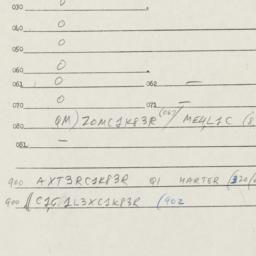 030 0
040 0
050 0
060 0
061 0 062 —
070 0 071 —
080 QM) ZOMC1K83R (067) ME4L1C (8
081 —
900 AXT3RC1K83R Q1 HARTER (320/
900 C1G.1L3XC1K83R (902